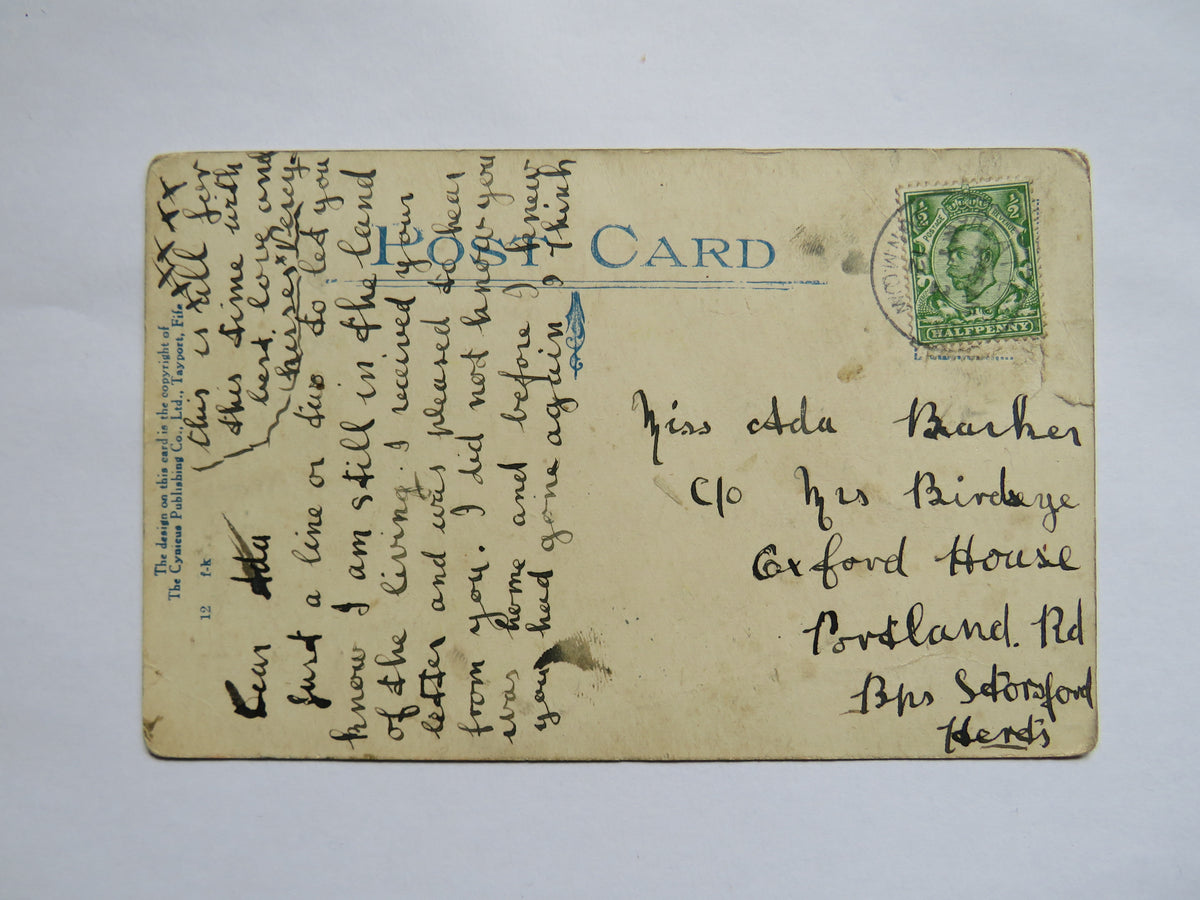 POST CARD
The design on this card is the copyright of
The Cynicus Publishing Co., Ltd., Tayport, Fife
12 f-k
Dear Ada
just a line or two to let you
know I am still in the land
of the living. I received your
letter and was pleased to hear
from you. I did not know you
was home and before I knew
you had gone again I think
this is all for
this time with
best love and
kisses Percy
x x x x x
½ POSTAGE ½
HALFPENNY
Miss Ada Barker
C/o Mrs Birdseye
Oxford House
Portland. Rd
Bps Storsford
Herts